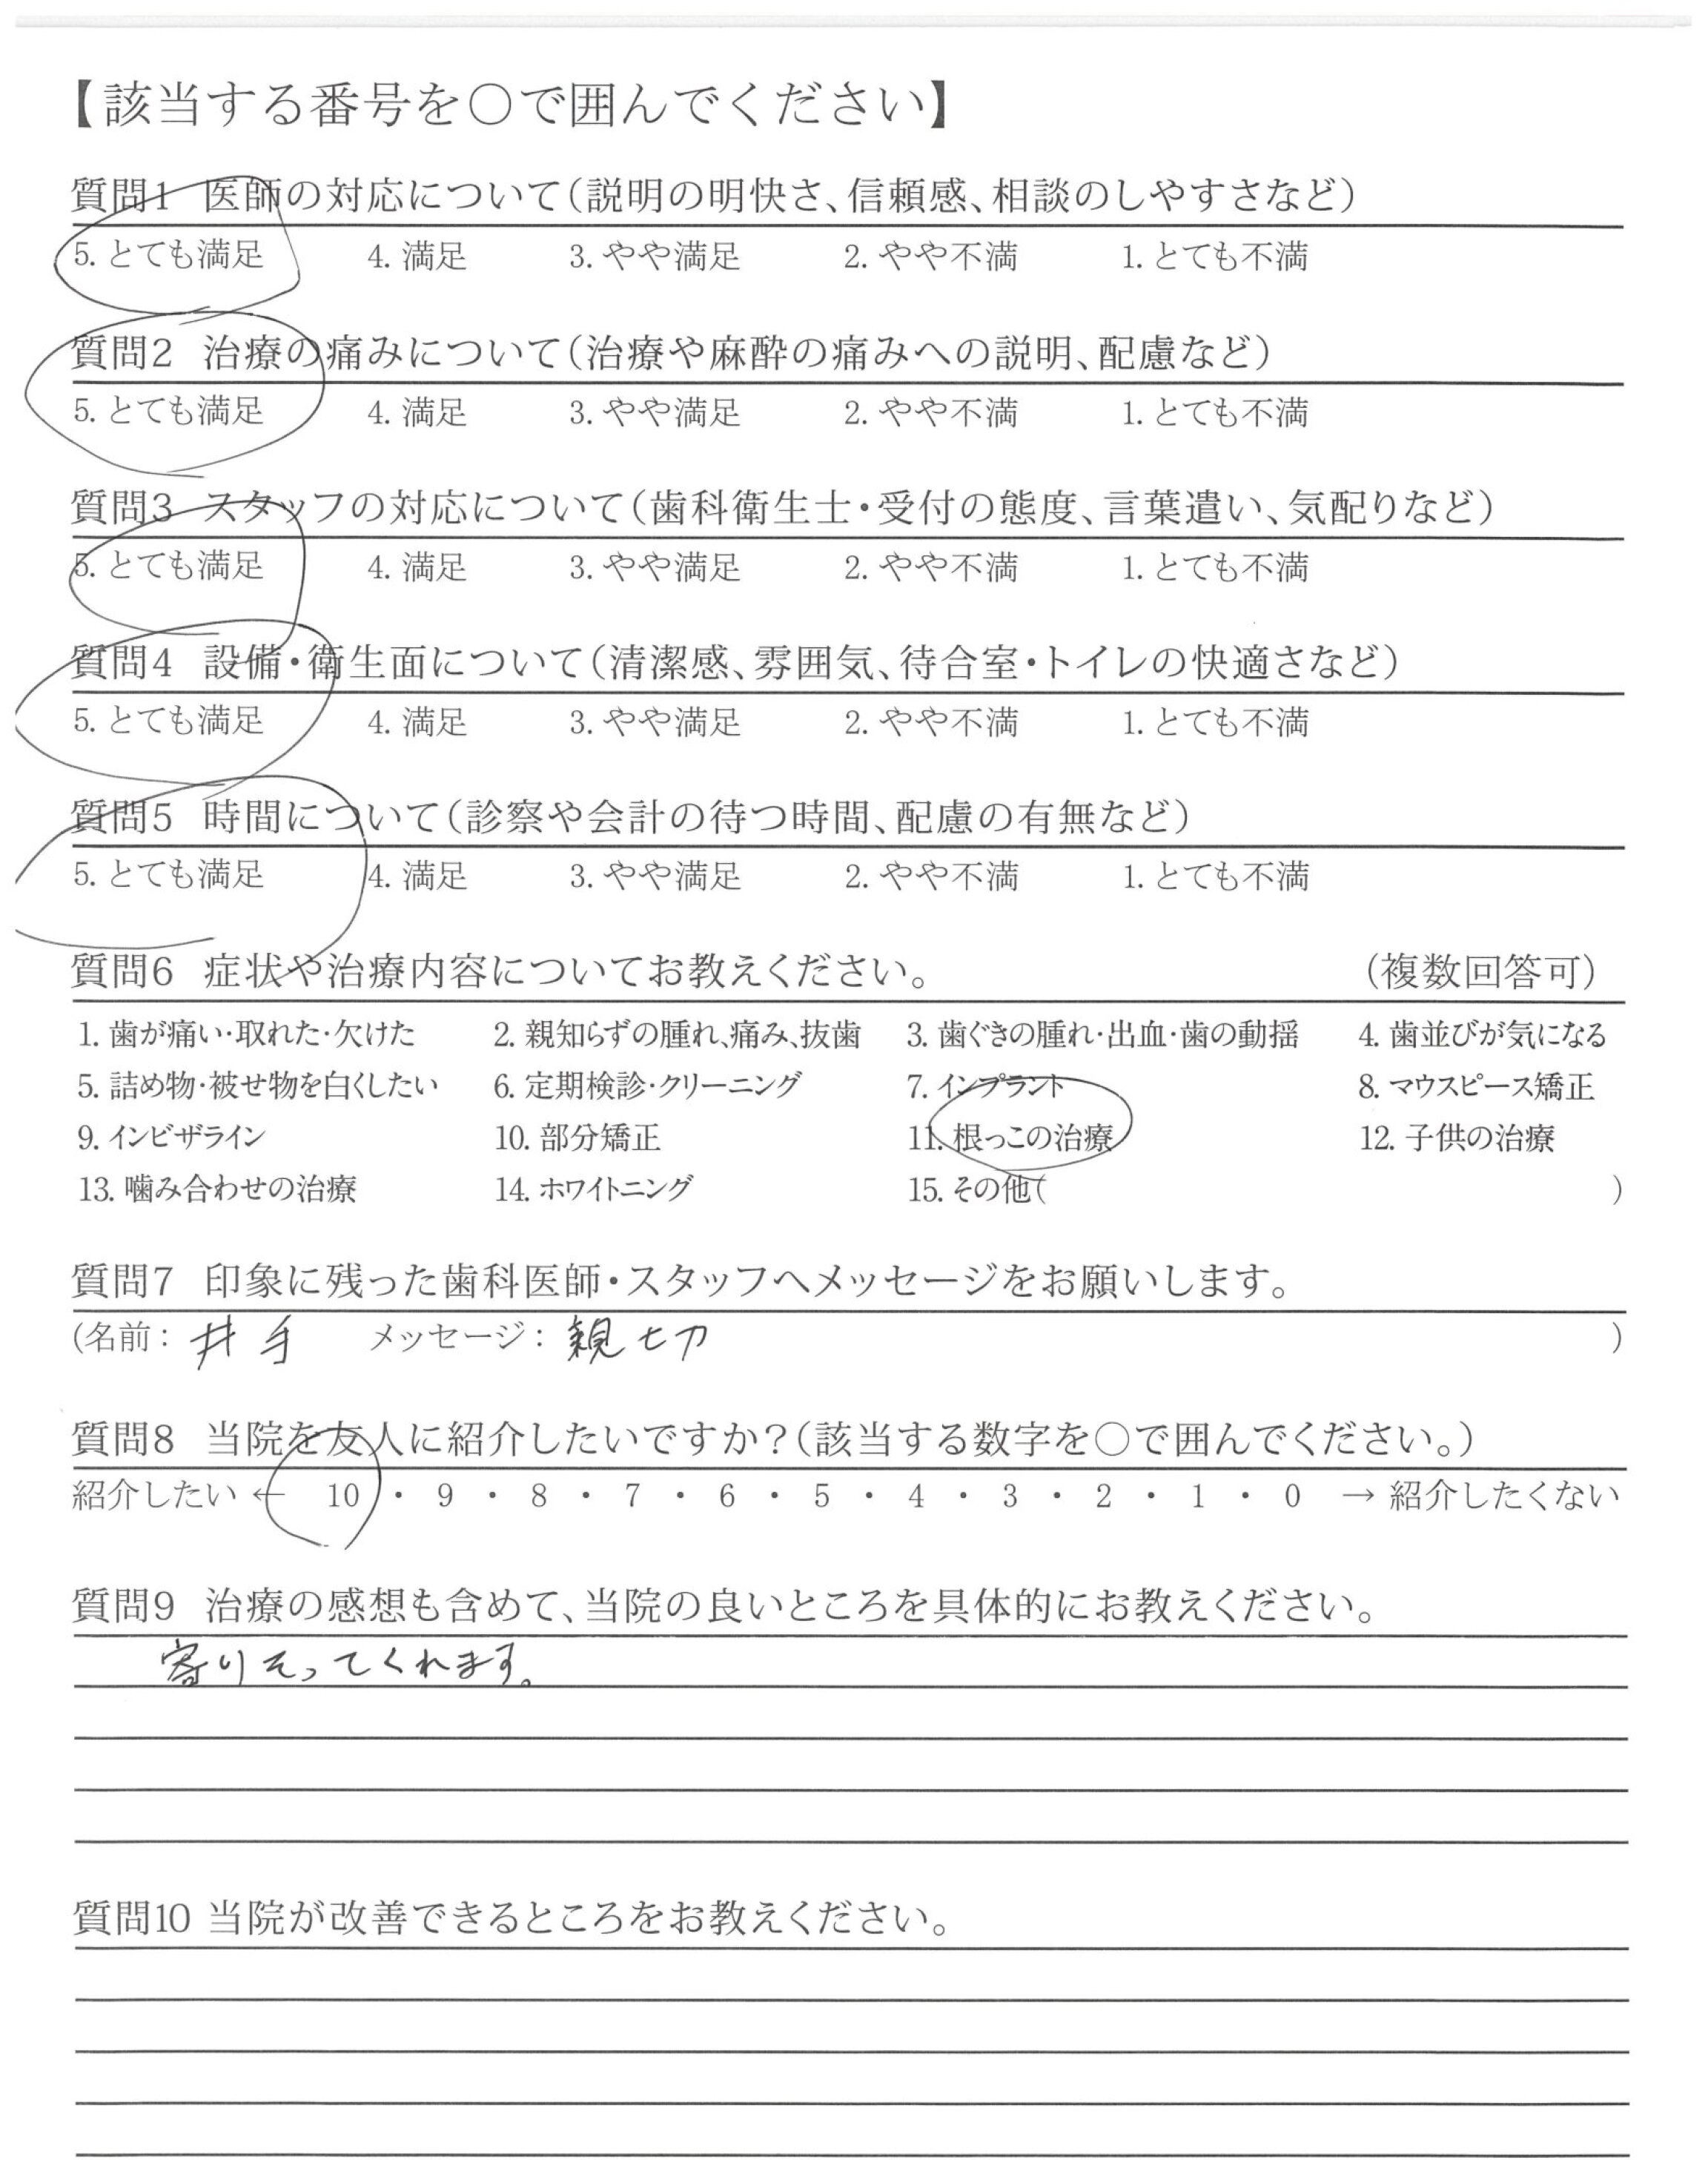 【該当する番号を○で囲んでください】
質問1 医師の対応について(説明の明快さ、信頼感、相談のしやすさなど)
5. とても満足 4. 満足 3. やや満足 2. やや不満 1. とても不満
質問2 治療の痛みについて(治療や麻酔の痛みへの説明、配慮など)
5. とても満足 4. 満足 3. やや満足 2. やや不満 1. とても不満
質問3 スタッフの対応について(歯科衛生士・受付の態度、言葉遣い、気配りなど)
5. とても満足 4. 満足 3. やや満足 2. やや不満 1. とても不満
質問4 設備・衛生面について(清潔感、雰囲気、待合室・トイレの快適さなど)
5. とても満足 4. 満足 3. やや満足 2. やや不満 1. とても不満
質問5 時間について(診察や会計の待つ時間、配慮の有無など)
5. とても満足 4. 満足 3. やや満足 2. やや不満 1. とても不満
質問6 症状や治療内容についてお教えください。 (複数回答可)
1. 歯が痛い・取れた・欠けた 2. 親知らずの腫れ、痛み、抜歯 3. 歯ぐきの腫れ・出血・歯の動揺 4. 歯並びが気になる
5. 詰め物・被せ物を白くしたい 6. 定期検診・クリーニング 7. インプラント 8. マウスピース矯正
9. インビザライン 10. 部分矯正 11. 根っこの治療 12. 子供の治療
13. 噛み合わせの治療 14. ホワイトニング 15. その他( )
質問7 印象に残った歯科医師・スタッフへメッセージをお願いします。
(名前: 井手 メッセージ: 親切 )
質問8 当院を友人に紹介したいですか?(該当する数字を○で囲んでください。)
紹介したい ← 10 ・ 9 ・ 8 ・ 7 ・ 6 ・ 5 ・ 4 ・ 3 ・ 2 ・ 1 ・ 0 → 紹介したくない
質問9 治療の感想も含めて、当院の良いところを具体的にお教えください。
寄りそってくれます。
質問10 当院が改善できるところをお教えください。